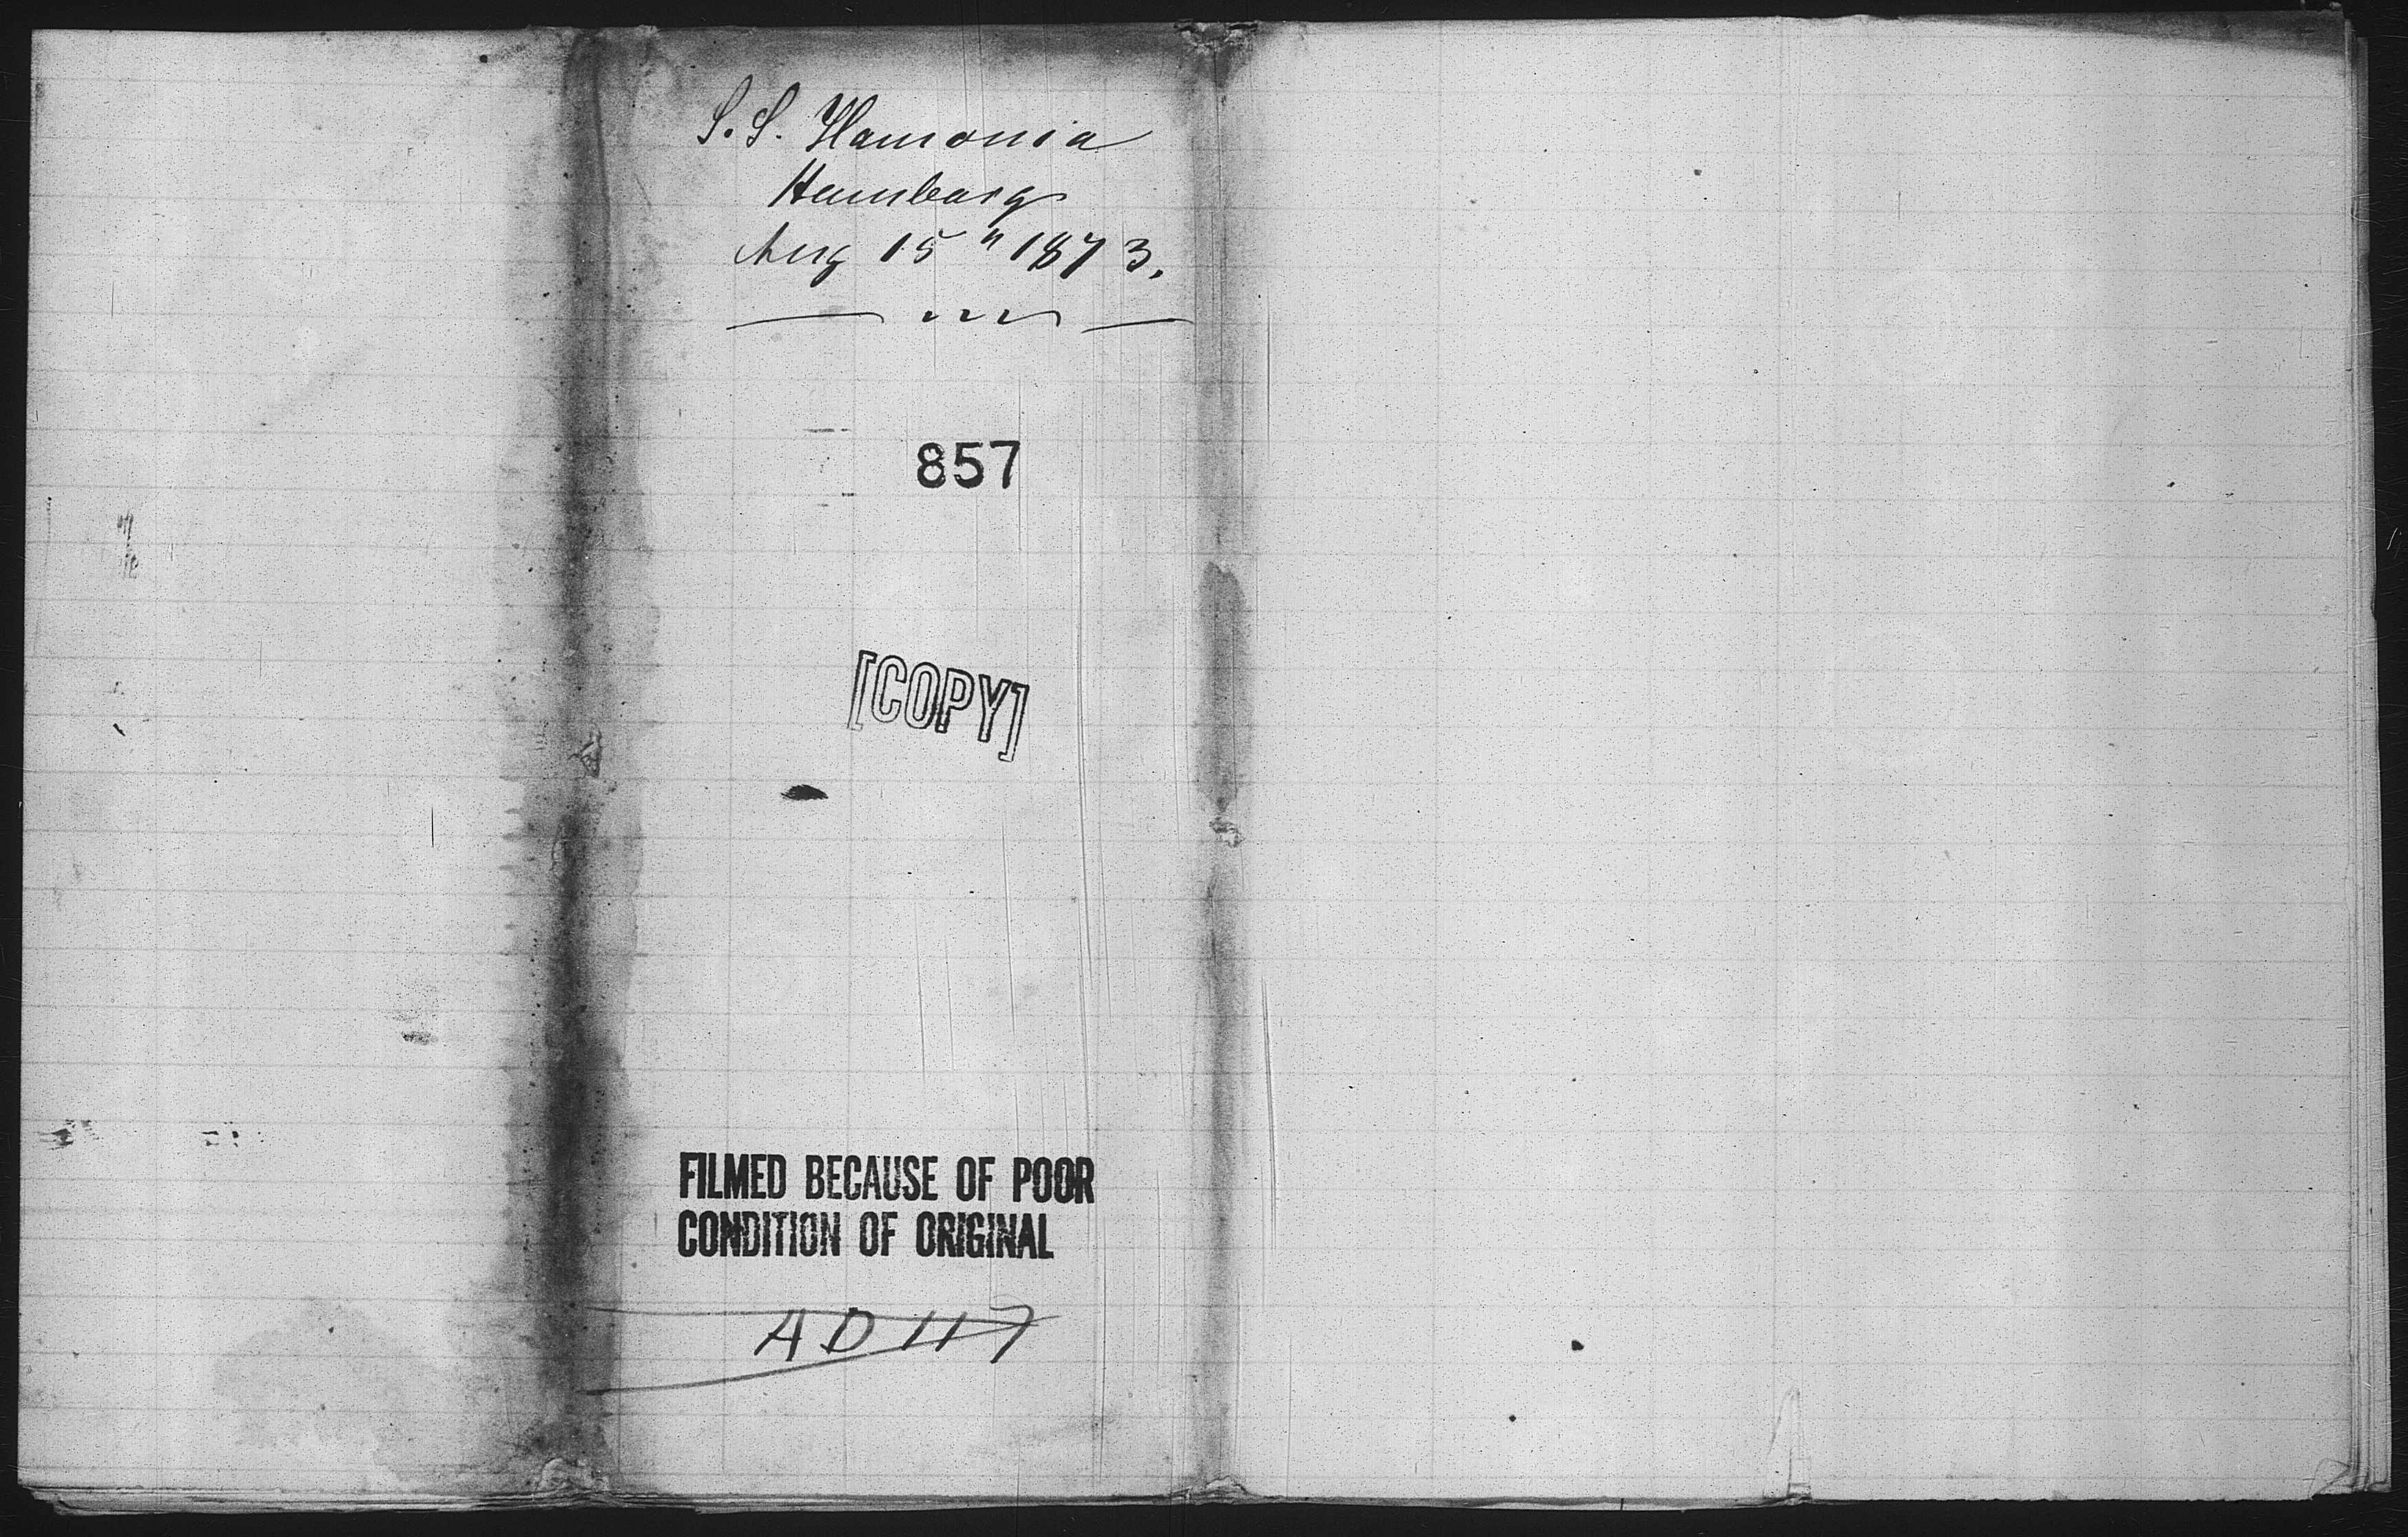 S. S. Hamonia
Hamburg
Aug 15" 1873.
857
[COPY]
FILMED BECAUSE OF POOR
CONDITION OF ORIGINAL
AD 117